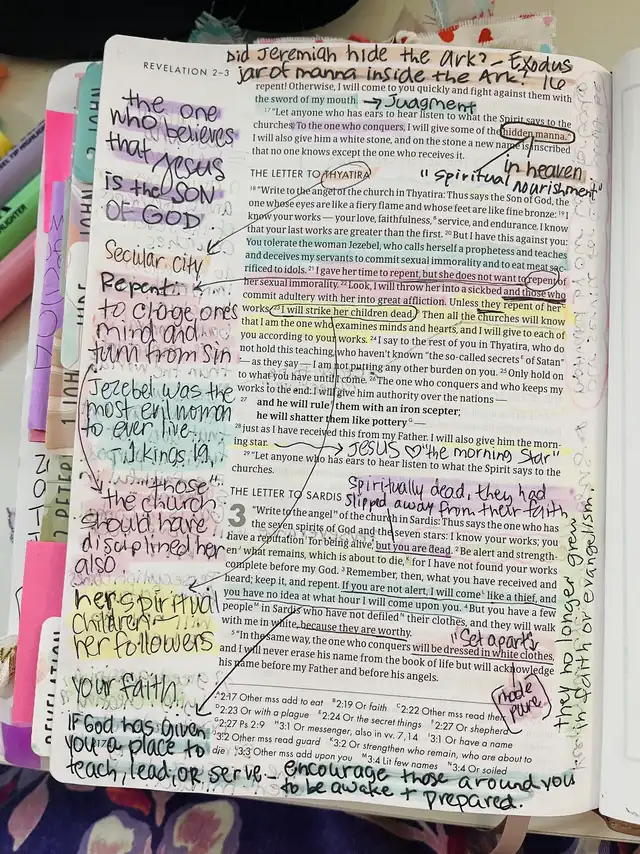 Did Jeremiah hide the Ark? - Exodus
jar of manna inside the Ark? 16
REVELATION 2–3
repent! Otherwise, I will come to you quickly and fight against them with
the sword of my mouth. → Judgment
17 "Let anyone who has ears to hear listen to what the Spirit says to the
churches. To the one who conquers, I will give some of the hidden manna.
I will also give him a white stone, and on the stone a new name is inscribed
that no one knows except the one who receives it.
in heaven
"spiritual nourishment"
THE LETTER TO THYATIRA
18 "Write to the angel of the church in Thyatira: Thus says the Son of God, the
one whose eyes are like a fiery flame and whose feet are like fine bronze: 19 I
know your works — your love, faithfulness, service, and endurance. I know
that your last works are greater than the first. 20 But I have this against you:
You tolerate the woman Jezebel, who calls herself a prophetess and teaches
and deceives my servants to commit sexual immorality and to eat meat sac-
rificed to idols. 21 I gave her time to repent, but she does not want to repent of
her sexual immorality. 22 Look, I will throw her into a sickbed and those who
commit adultery with her into great affliction. Unless they repent of her
works, 23 I will strike her children dead. Then all the churches will know
that I am the one who examines minds and hearts, and I will give to each of
you according to your works. 24 I say to the rest of you in Thyatira, who do
not hold this teaching, who haven't known "the so-called secrets of Satan"
— as they say — I am not putting any other burden on you. 25 Only hold on
to what you have until I come. 26 The one who conquers and who keeps my
works to the end: I will give him authority over the nations —
27 and he will rule them with an iron scepter;
he will shatter them like pottery —
28 just as I have received this from my Father. I will also give him the morn-
ing star. → JESUS ♡ "the morning star"
29 "Let anyone who has ears to hear listen to what the Spirit says to the
churches.
THE LETTER TO SARDIS
Spiritually dead, they had
slipped away from their faith
3 "Write to the angel of the church in Sardis: Thus says the one who has
the seven spirits of God and the seven stars: I know your works; you
have a reputation for being alive, but you are dead. 2 Be alert and strength-
en what remains, which is about to die, for I have not found your works
complete before my God. 3 Remember, then, what you have received and
heard; keep it, and repent. If you are not alert, I will come like a thief, and
you have no idea at what hour I will come upon you. 4 But you have a few
people in Sardis who have not defiled their clothes, and they will walk
with me in white, because they are worthy.
5 "In the same way, the one who conquers will be dressed in white clothes,
and I will never erase his name from the book of life but will acknowledge
his name before my Father and before his angels.
"Set apart"
made
pure
2:17 Other mss add to eat 2:19 Or faith 2:22 Other mss read their
2:23 Or with a plague 2:24 Or the secret things 2:27 Or shepherd
2:27 Ps 2:9 3:1 Or messenger, also in vv. 7,14 3:1 Or have a name
3:2 Other mss read guard 3:2 Or strengthen who remain, who are about to
die 3:3 Other mss add upon you 3:4 Lit few names 3:4 Or soiled
the one
who believes
that Jesus
is the SON
OF GOD
Secular city
Repent:
to change one's
mind and
turn from sin
Jezebel was the
most evil woman
to ever live.
1 Kings 19,
"those":
the church
should have
disciplined her
also.
her spiritual
children -
her followers
your faith.
IF God has given
you a place to
teach, lead, or serve - encourage those around you
to be awake + prepared.
they no longer grew
in faith or evangelism.
2 JOHN
1 JOHN
2 PETER